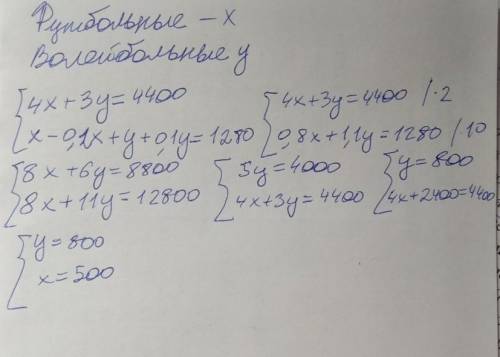 Футбольные – x
Волейбольные y
{4x+3y=4400
x-0,2x+y+0,1y=1280
{4x+3y=4400 /·2
0,8x+1,1y=1280 /·10
{8x+6y=8800
8x+11y=12800
{5y=4000
4x+3y=4400
{y=800
4x+2400=4400
{y=800
x=500